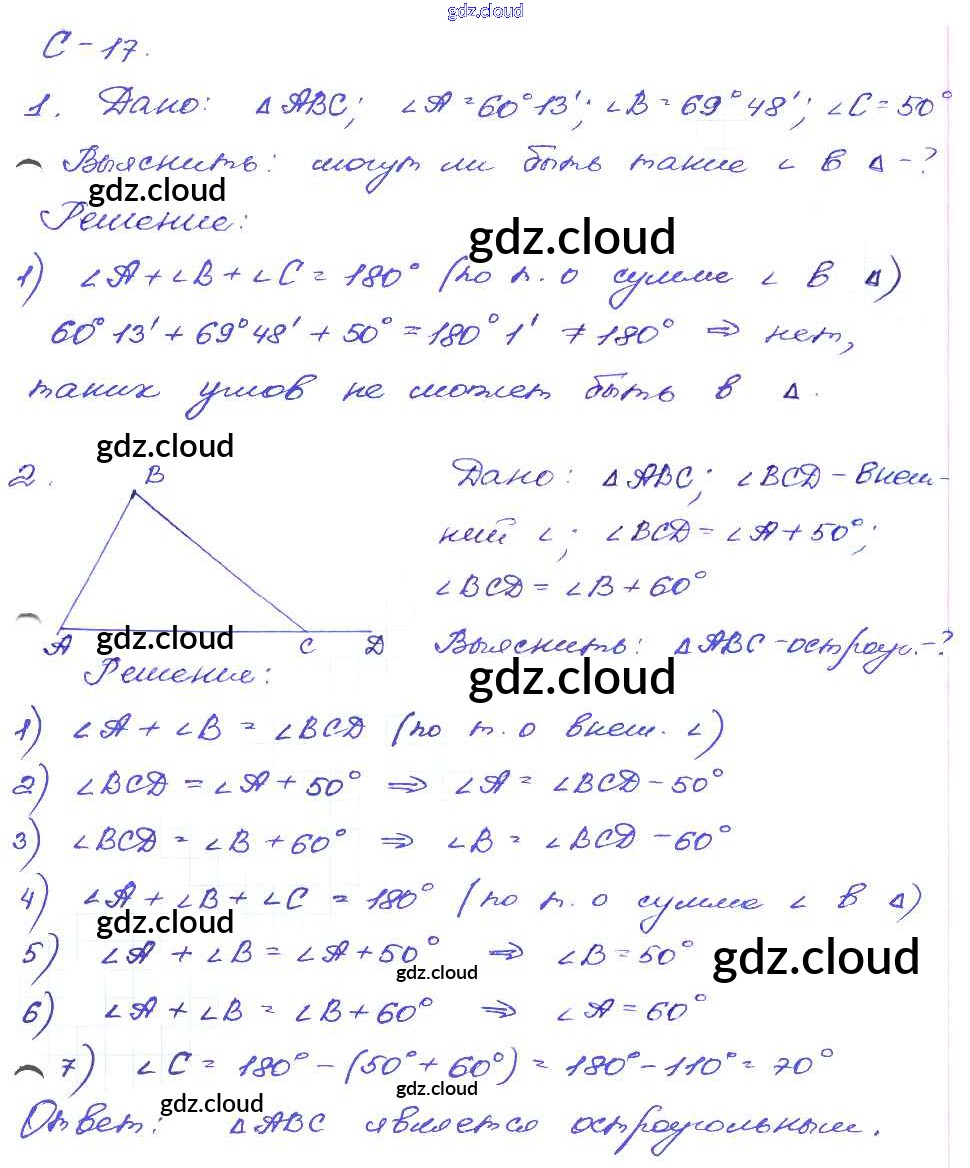 gdz.cloud
С-17.
1. Дано: △ABC; ∠A=60°13'; ∠B=69°48'; ∠C=50°
Выяснить: могут ли быть такие ∠ в △-?
gdz.cloud
Решение:
gdz.cloud
1) ∠A+∠B+∠C=180° (по т. о сумме ∠ в △)
60°13'+69°48'+50°=180°1' ≠180° ⇒ нет,
таких углов не может быть в △.
gdz.cloud
2.
B
A
C
D
gdz.cloud
Дано: △ABC; ∠BCD-внеш-
ний ∠; ∠BCD=∠A+50°;
∠BCD=∠B+60°
Выяснить: △ABC-остроуг.-?
gdz.cloud
Решение:
1) ∠A+∠B=∠BCD (по т. о внеш. ∠)
2) ∠BCD=∠A+50° ⇒ ∠A=∠BCD-50°
3) ∠BCD=∠B+60° ⇒ ∠B=∠BCD-60°
4) ∠A+∠B+∠C=180° (по т. о сумме ∠ в △)
gdz.cloud
5) ∠A+∠B=∠A+50° ⇒ ∠B=50°
gdz.cloud
gdz.cloud
6) ∠A+∠B=∠B+60° ⇒ ∠A=60°
7) ∠C=180°-(50°+60°)=180°-110°=70°
gdz.cloud
gdz.cloud
Ответ: △ABC является остроугольным.